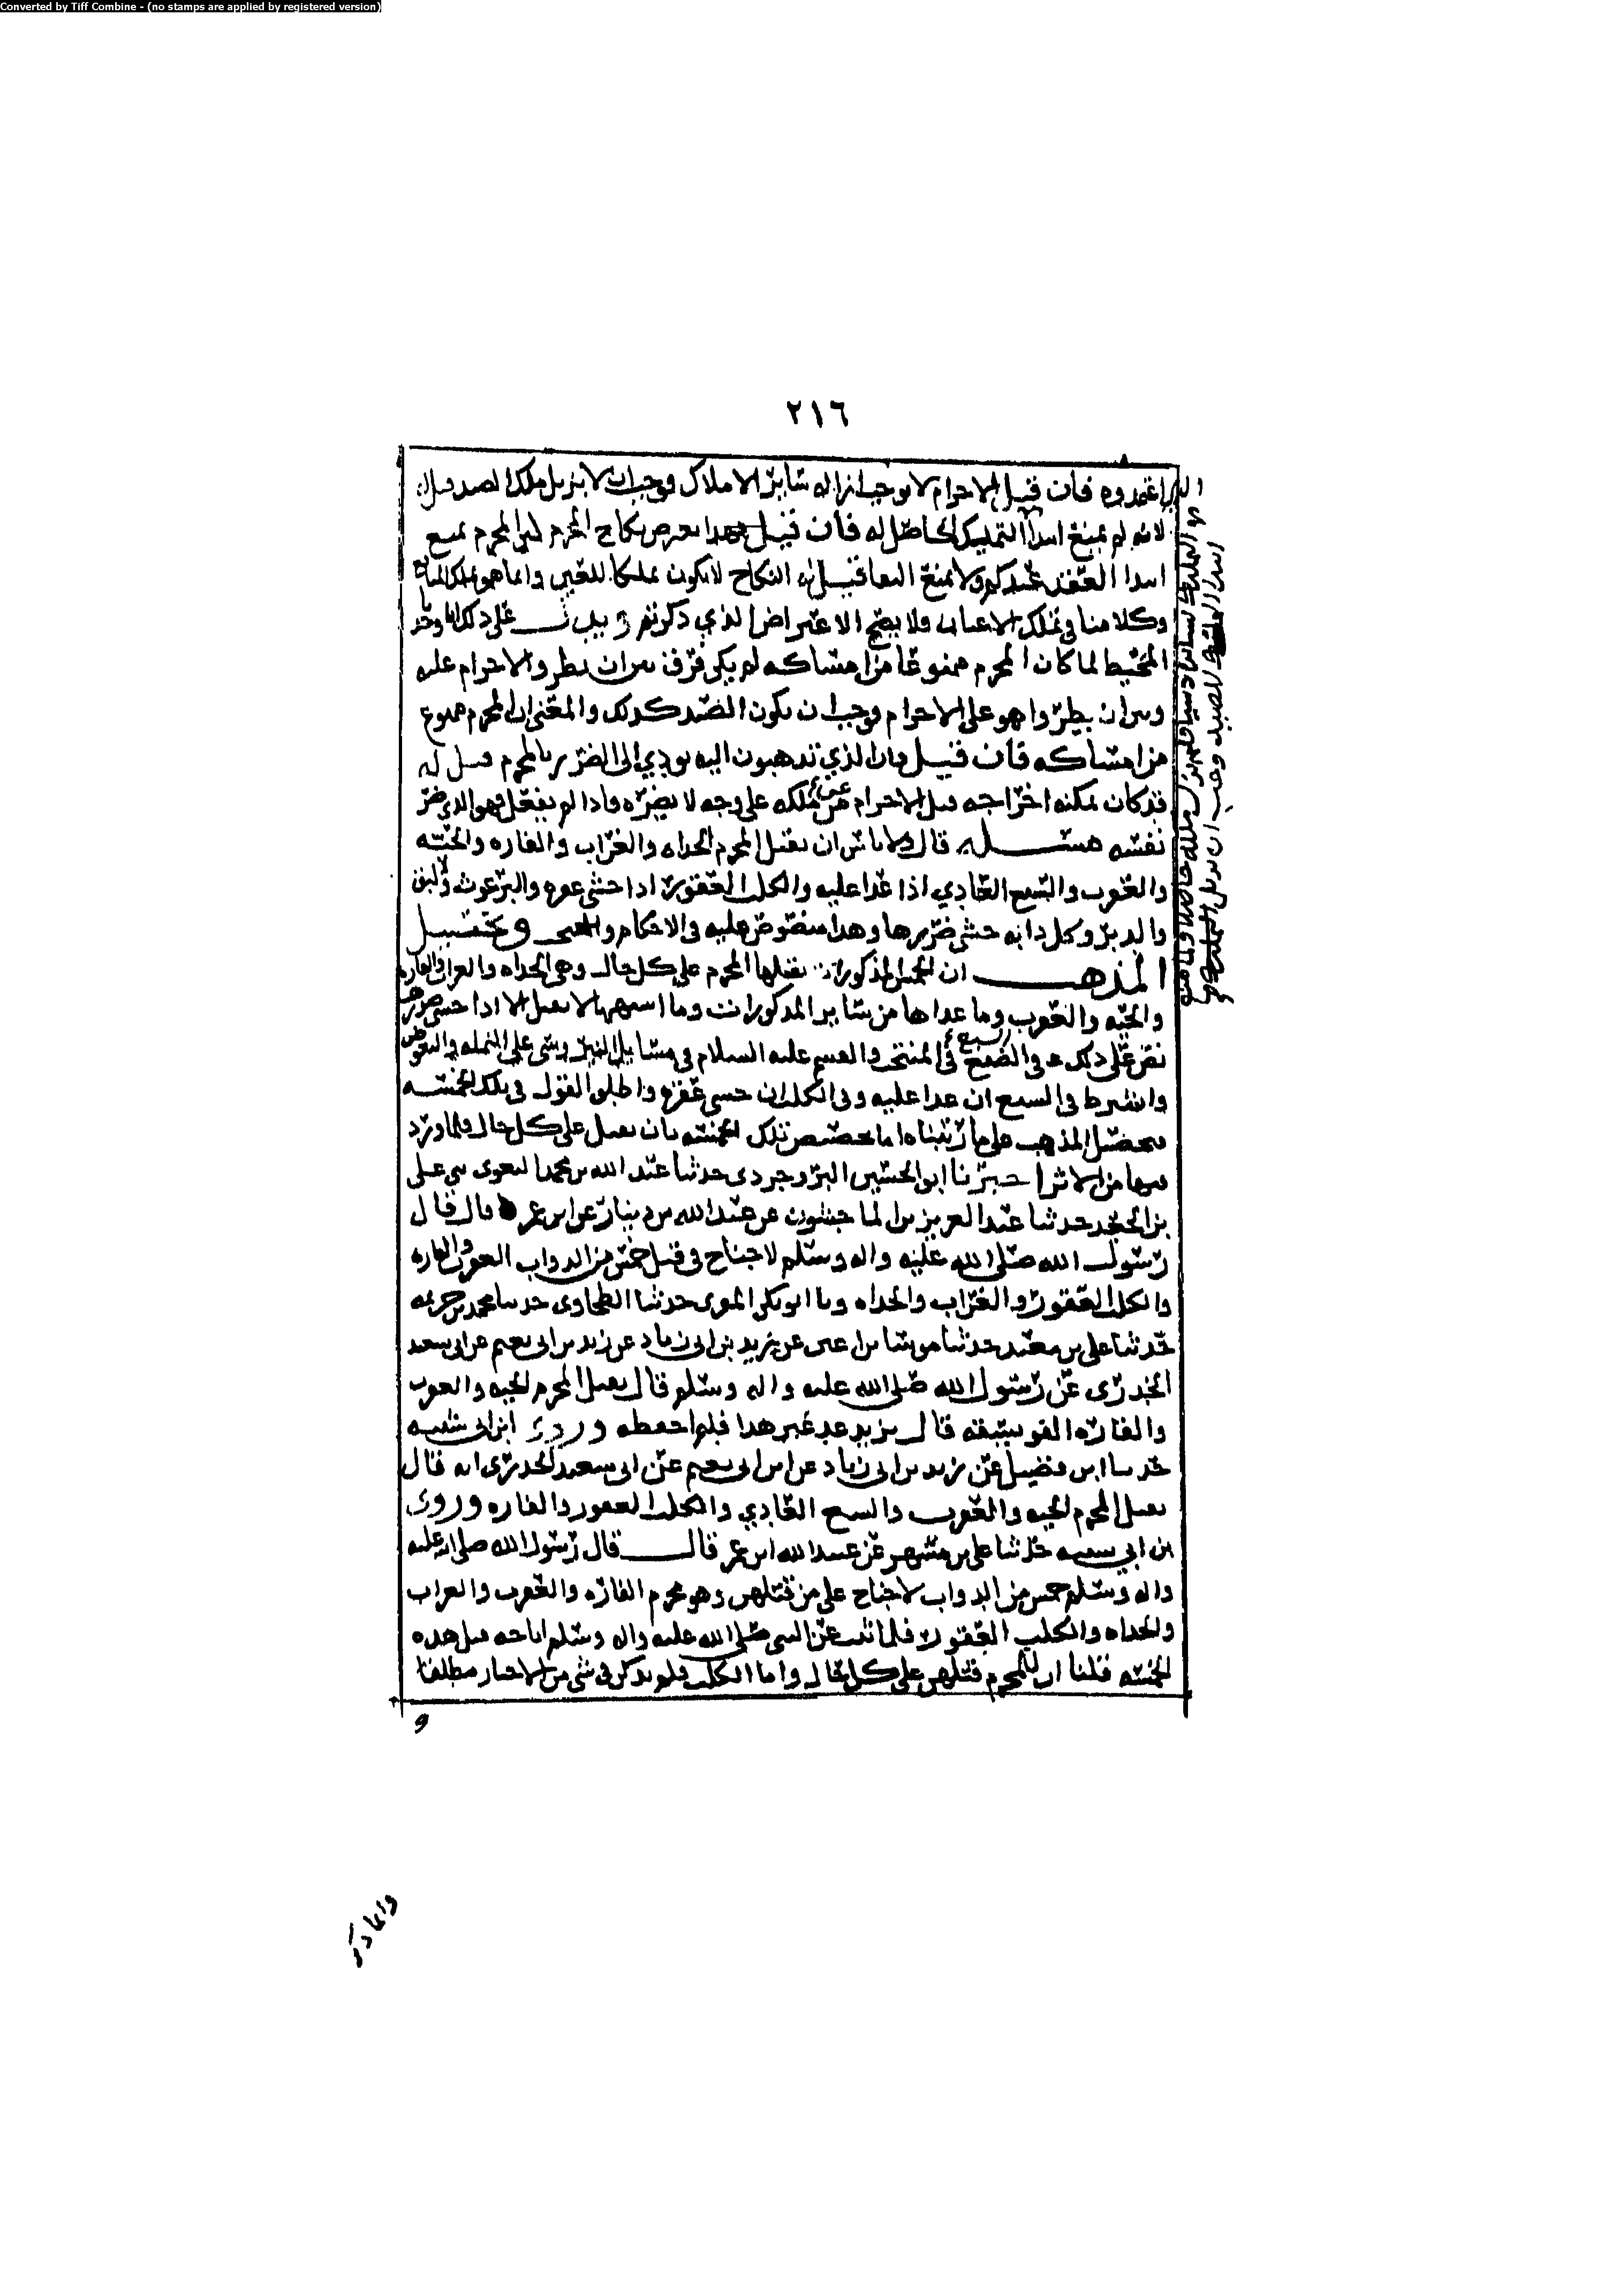 Converted by Tiff Combine - (no stamps are applied by registered version)
٢١٦
اعتمدوه فان قيل الاحرام لا يوجب ازاله سائر الاملاك فوجب ان لا يزيل ملك الصيد قيل له
لانه لم يمنع ابتدأ التمليك الحاصل له فان قيل هذا يعرض نكاح المحرم لان المحرم يمنع
ابتدا العقد عندكم ولا يمنع البقا قيل له النكاح لا يكون تملكا للعين وانما هو تملك المنافع
وكلامنا في تملك الاعيان ولا يصح الاعتراض الذي ذكرتم ويدل على ذلك انا وجدنا
المخيط لما كان المحرم ممنوعا من امساكه لم يكن فرق بين ان يطرو الاحرام عليه
وبين ان يطروا هو على الاحرام فوجب ان يكون الصيد كذلك والمعنى ان المحرم ممنوع
من امساكه فان قيل فان الذي تذهبون اليه يودي الى الضرر بالمحرم قيل له
قد كان يمكنه اخراجه قبل الاحرام عن ملكه على وجه لا يضره فاذا لم يفعل فهو الذي ضر
نفسه مسئله قال ولا باس ان يقتل المحرم الحداه والغراب والفاره والحيه
والعقرب والسبع العادي اذا عدا عليه والكلب العقور اذا خشي عقره والبرغوث والبق
والدبر وكل دابه خشي ضررها وهذا منصوص عليه في الاحكام والمنتخب وتحصيل
المذهب ان الخمس المذكورات يقتلها المحرم على كل حال وهي الحداه والغراب والفاره
والحيه والعقرب وما عداها من سائر المذكورات وما اشبهها لا يقتل الا اذا خشي ضررها
نص على ذلك في السبع في المنتخب والقسم عليه السلام في مسايل النيروسي على النمله والبعوض
واشترط في السبع ان عدا عليه وفي الكلب ان خشي عقره واطلق القول في تلك الخمسه
فحصل المذهب على ما رتبناه اما تخصيص تلك الخمسه بان تقتل على كل حال فلما ورد
فيها من الاثر اخبرنا ابو الحسين البروجردي حدثنا عبد الله بن محمد البغوي نبي علي
بن الجعد حدثنا عبد العزيز بن الماجشون عن عبد الله بن دينار عن ابن عمر قال قال
رسول الله صلى الله عليه واله وسلم لا جناح في قتل خمس من الدواب العقرب والفاره
والكلب العقور والغراب والحداه ونا ابو بكر المقري حدثنا الطحاوي حدثنا محمد بن خزيمه
حدثنا علي بن معبد حدثنا موسى بن اعين عن يزيد بن ابي زياد عن زيد بن ابي نعيم عن ابي سعيد
الخدري عن رسول الله صلى الله عليه واله وسلم قال يقتل المحرم الحيه والعقرب
والفاره الفويسقه قال يزيد عد غير هذا فلم احفظه وروى ابن ابي شيبه
حدثنا ابن فضيل عن يزيد بن ابي زياد عن ابن ابي نعيم عن ابي سعيد الخدري انه قال
يقتل المحرم الحيه والعقرب والسبع العادي والكلب العقور والفاره وروى
بن ابي شيبه حدثنا علي بن مسهر عن عبيد الله ابن عمر قال قال رسول الله صلى الله عليه
واله وسلم خمس من الدواب لا جناح على من قتلهن وهو محرم الفاره والعقرب والغراب
والحداه والكلب العقور فلما ثبت عن النبي صلى الله عليه واله وسلم اباحه قتل هذه
الخمسه قلنا ان للمحرم قتلهن على كل حال واما الكلب فلم يذكر في شي من الاخبار مطلقا
و